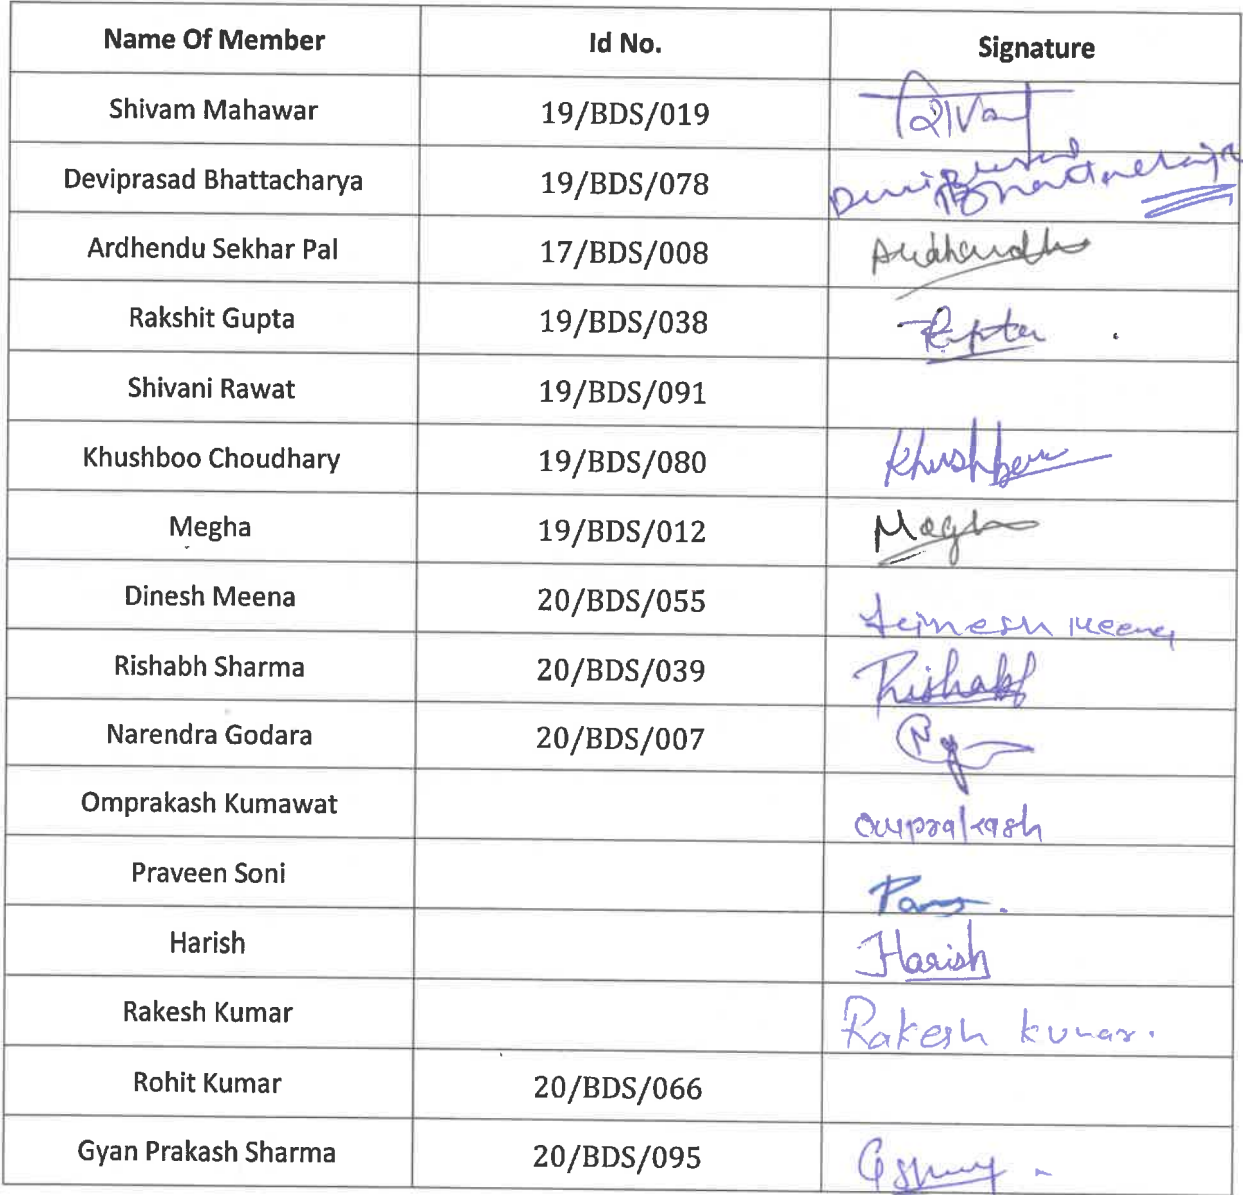 Name Of Member Id No. Signature
Shivam Mahawar 19/BDS/019 शिवम
Deviprasad Bhattacharya 19/BDS/078 Deviprasad Bhattacharya
Ardhendu Sekhar Pal 17/BDS/008 Ardhendu
Rakshit Gupta 19/BDS/038
Shivani Rawat 19/BDS/091
Khushboo Choudhary 19/BDS/080 Khushboo
Megha 19/BDS/012 Megha
Dinesh Meena 20/BDS/055 Dinesh Meena
Rishabh Sharma 20/BDS/039 Rishabh
Narendra Godara 20/BDS/007
Omprakash Kumawat Omprakash
Praveen Soni
Harish Harish
Rakesh Kumar Rakesh kumar.
Rohit Kumar 20/BDS/066
Gyan Prakash Sharma 20/BDS/095